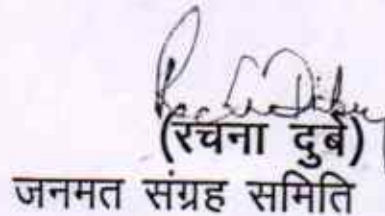 (रचना दुबे)
जनमत संग्रह समिति